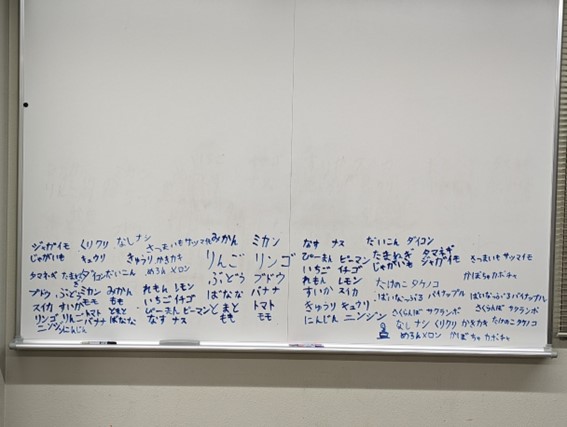 ジャガイモ くりクリ なしナシ さつまいもサツマイモ みかん ミカン なす ナス だいこん ダイコン
じゃがいも キュウリ きゅうり かきカキ りんご リンゴ ぴーまん ピーマン たまねぎ タマネギ
じゃがいも ジャガイモ さつまいもサツマイモ
タマネギ たまねぎ ダイコン だいこん めろんメロン ぶどう ブドウ いちご イチゴ かぼちゃカボチャ
ブドウ ぶどう ミカン みかん れもん レモン ばなな バナナ れもん レモン たけのこ タケノコ
スイカ すいか モモ もも いちご イチゴ とまと トマト すいか スイカ ぱいなっぷる パイナップル ぱいなっぷる パイナップル
リンゴ りんご トマト とまと ぴーまん ピーマン もも モモ きゅうり キュウリ さくらんぼ サクランボ さくらんぼ サクランボ
ニンジン にんじん バナナ ばなな なす ナス にんじん ニンジン なしナシ くりクリ かきカキ たけのこタケノコ
めろんメロン かぼちゃ カボチャ